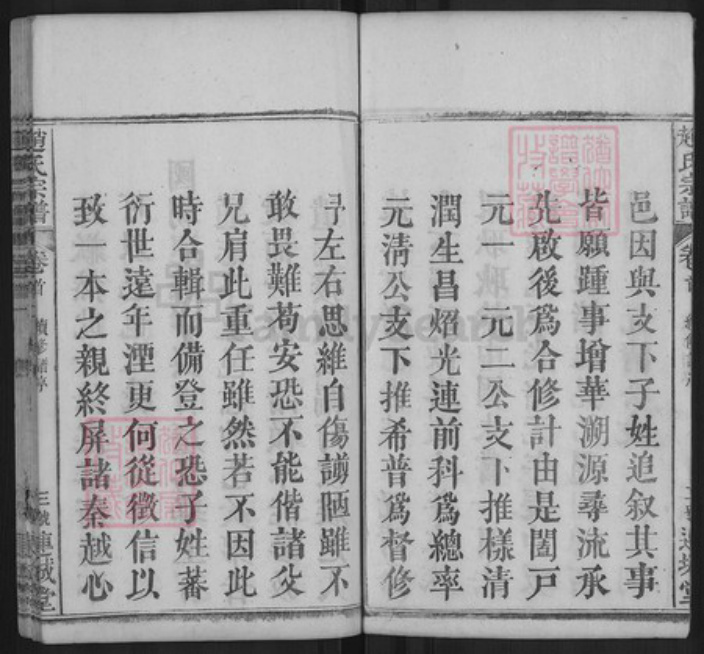 邑因與支下子姓追叙其事
皆願踵事增華溯源尋流承
先啟後爲合修計由是闔戶
元一 元二公支下推樣清
潤生昌炤光連前科爲總率
元淸公支下推希普爲督修
予左右思維自傷謭陋雖不
敢畏難苟安恐不能偕諸父
兄肩此重任雖然若不因此
時合輯而備登之恐子姓蕃
衍世遠年湮更何從徵信以
致一本之親終屏諸秦越心
趙氏宗譜 卷首 續修譜序 三號 連城堂